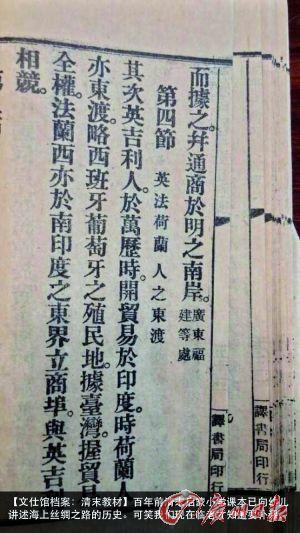 而據之并通商於明之南岸。廣東福建等處
第四節　英法荷蘭人之東渡
其次英吉利人於萬歷時。開貿易於印度時荷蘭人
亦東渡。略西班牙葡萄牙之殖民地。據臺灣。握貿易
全權。法蘭西亦於南印度之東界立商埠。與英吉
相競。
譯書局印行
譯書局印行
广州日报
【文仕馆档案：清末教材】百年前
小学课本已向幼儿
讲述海上丝绸之路的历史。可笑我们现在